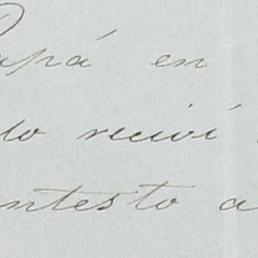 Papá en
do recivi
ntesto a